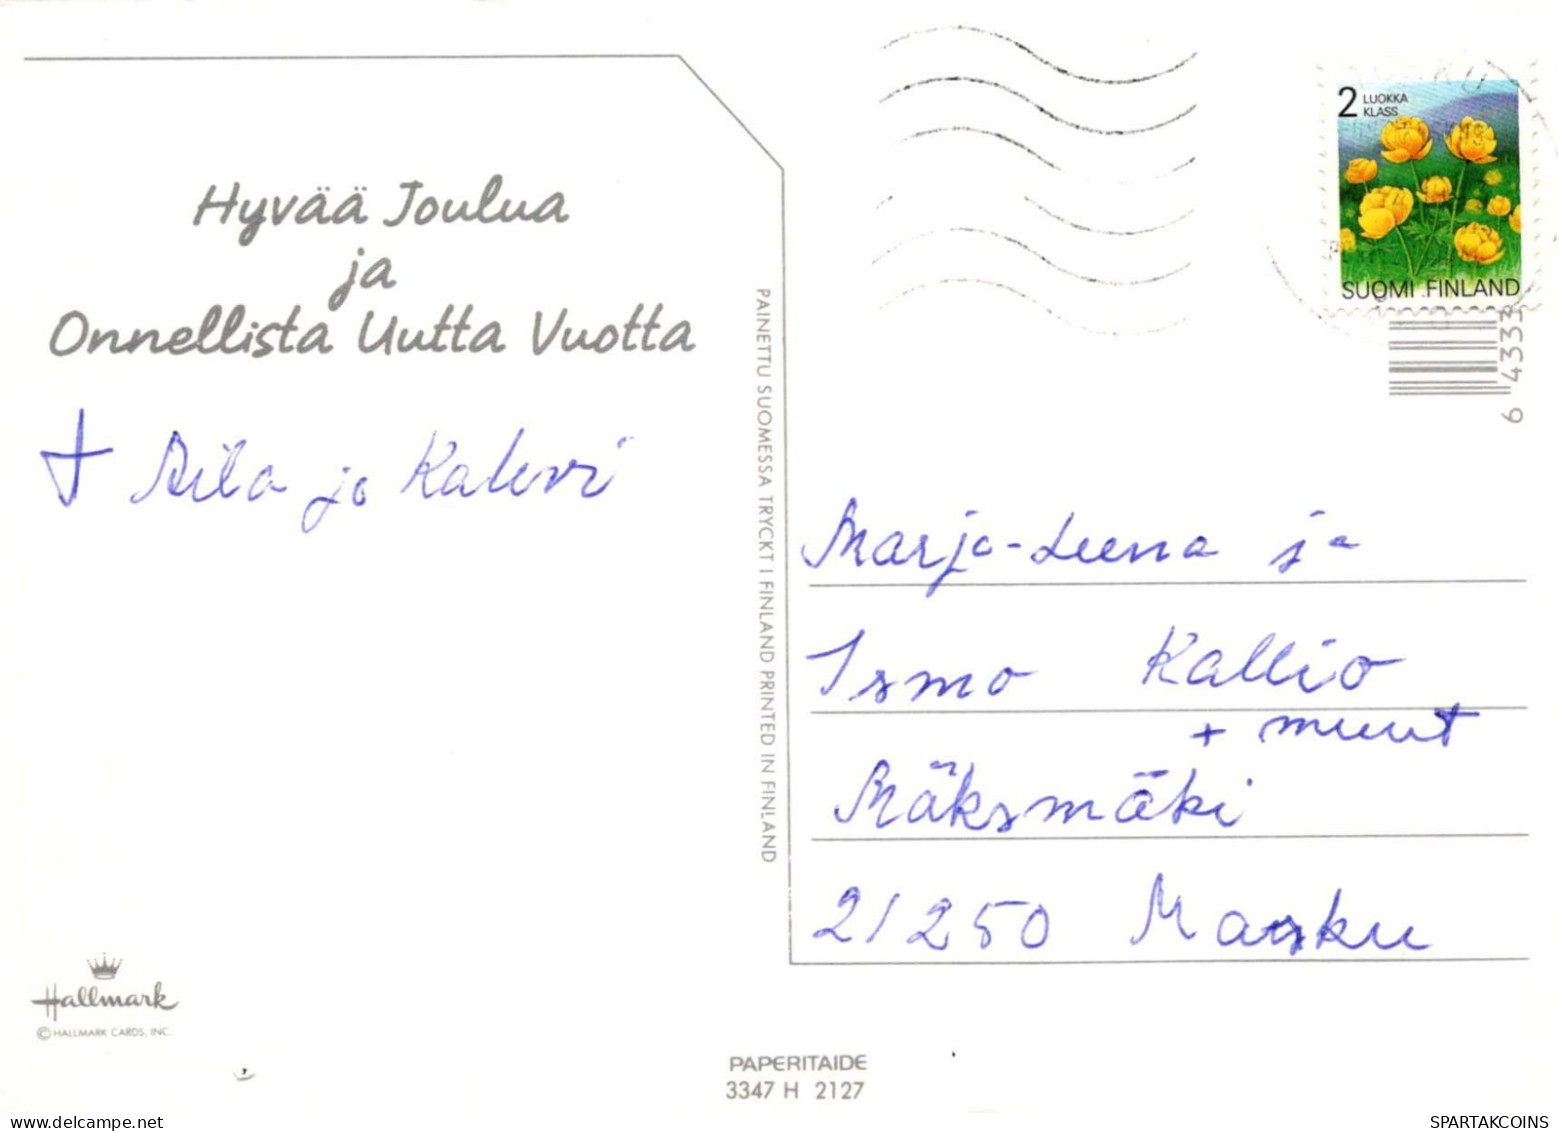 Hyvää Joulua
ja
Onnellista Uutta Vuotta
+ Aila ja Kalervi
PAINETTU SUOMESSA TRYCKT I FINLAND PRINTED IN FINLAND
2 LUOKKA
KLASS
SUOMI FINLAND
6 4333
Marja-Leena ja
Ismo Kallio
+ muut
Mäksmäki
21250 Masku
Hallmark
© HALLMARK CARDS, INC.
PAPERITAIDE
3347 H 2127
SPARTAKCOINS